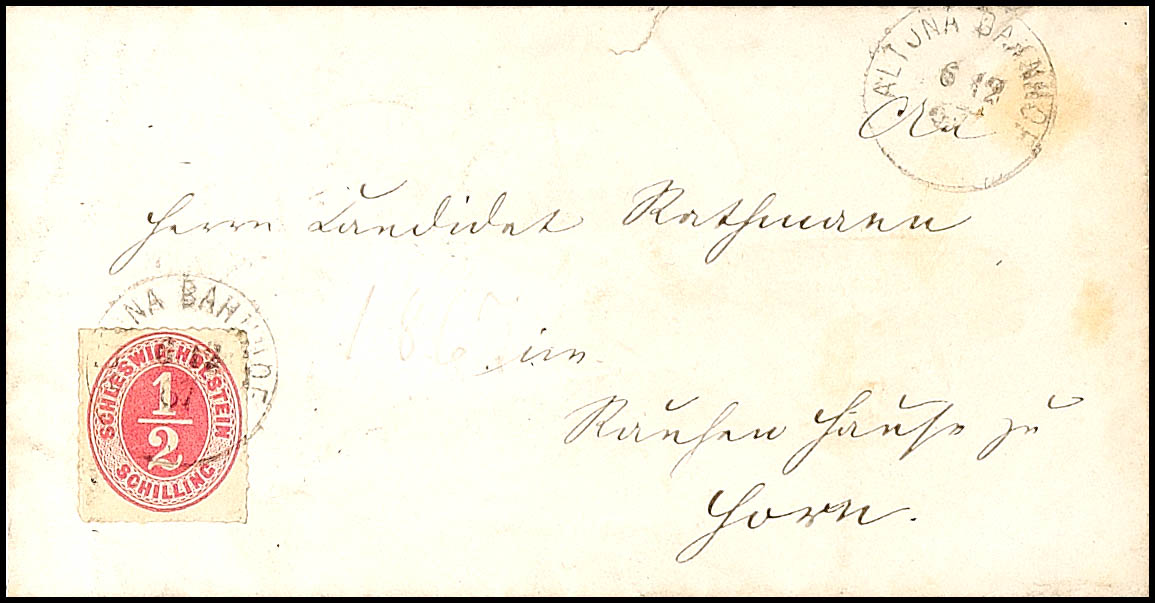 ALTONA BAHNHOF
6 12
67
An
Herrn Candidat Rathmann
im
Rauhen Hause zu
Horn.
ALTONA BAHNHOF
67
SCHLESWIG-HOLSTEIN
1/2
SCHILLING